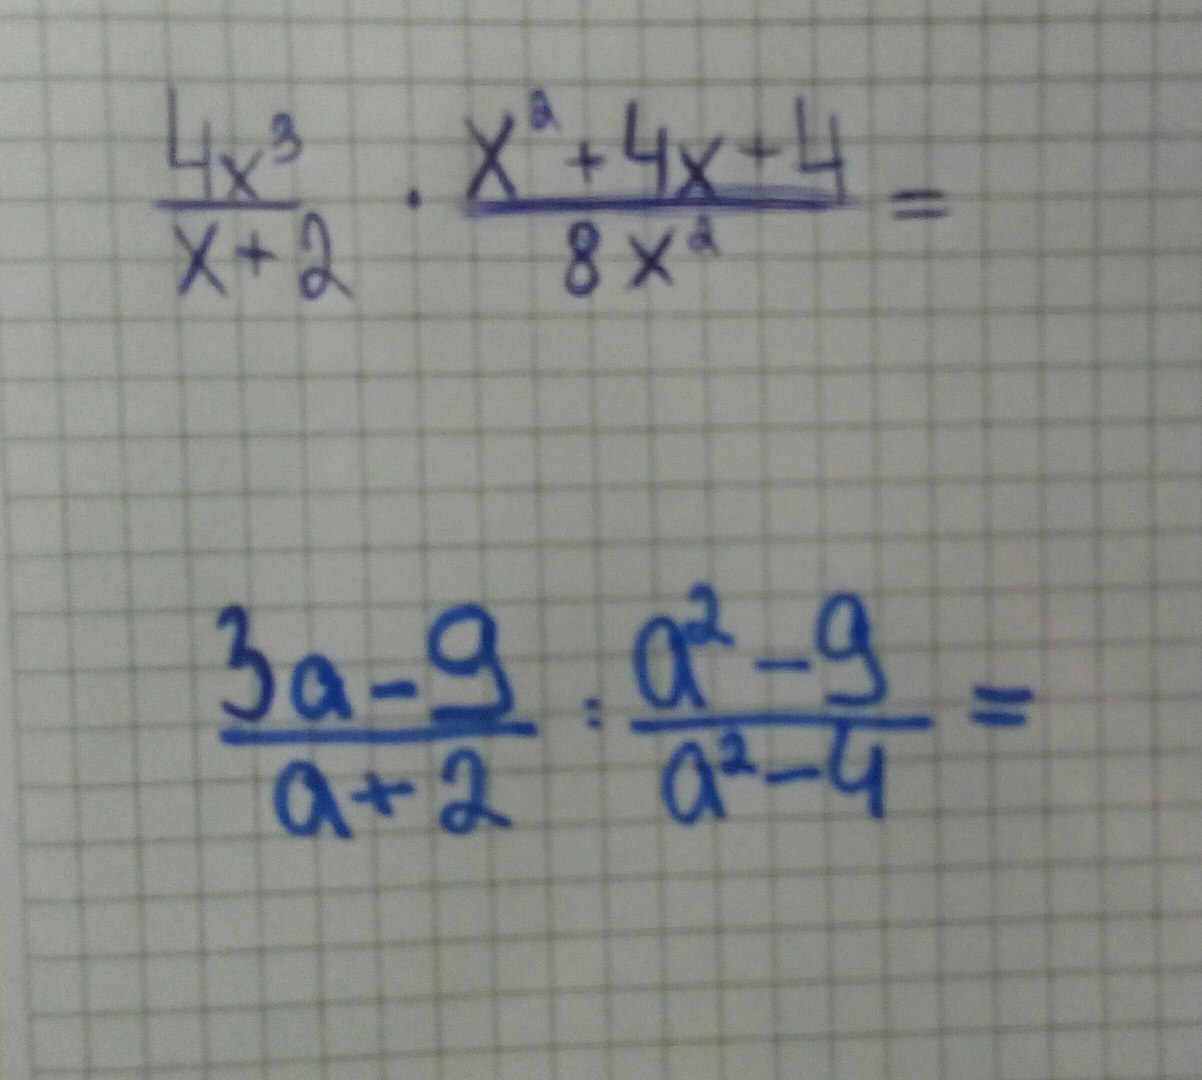 4x³/x+2 · x²+4x+4/8x² =
3a-9/a+2 : a²-9/a²-4 =